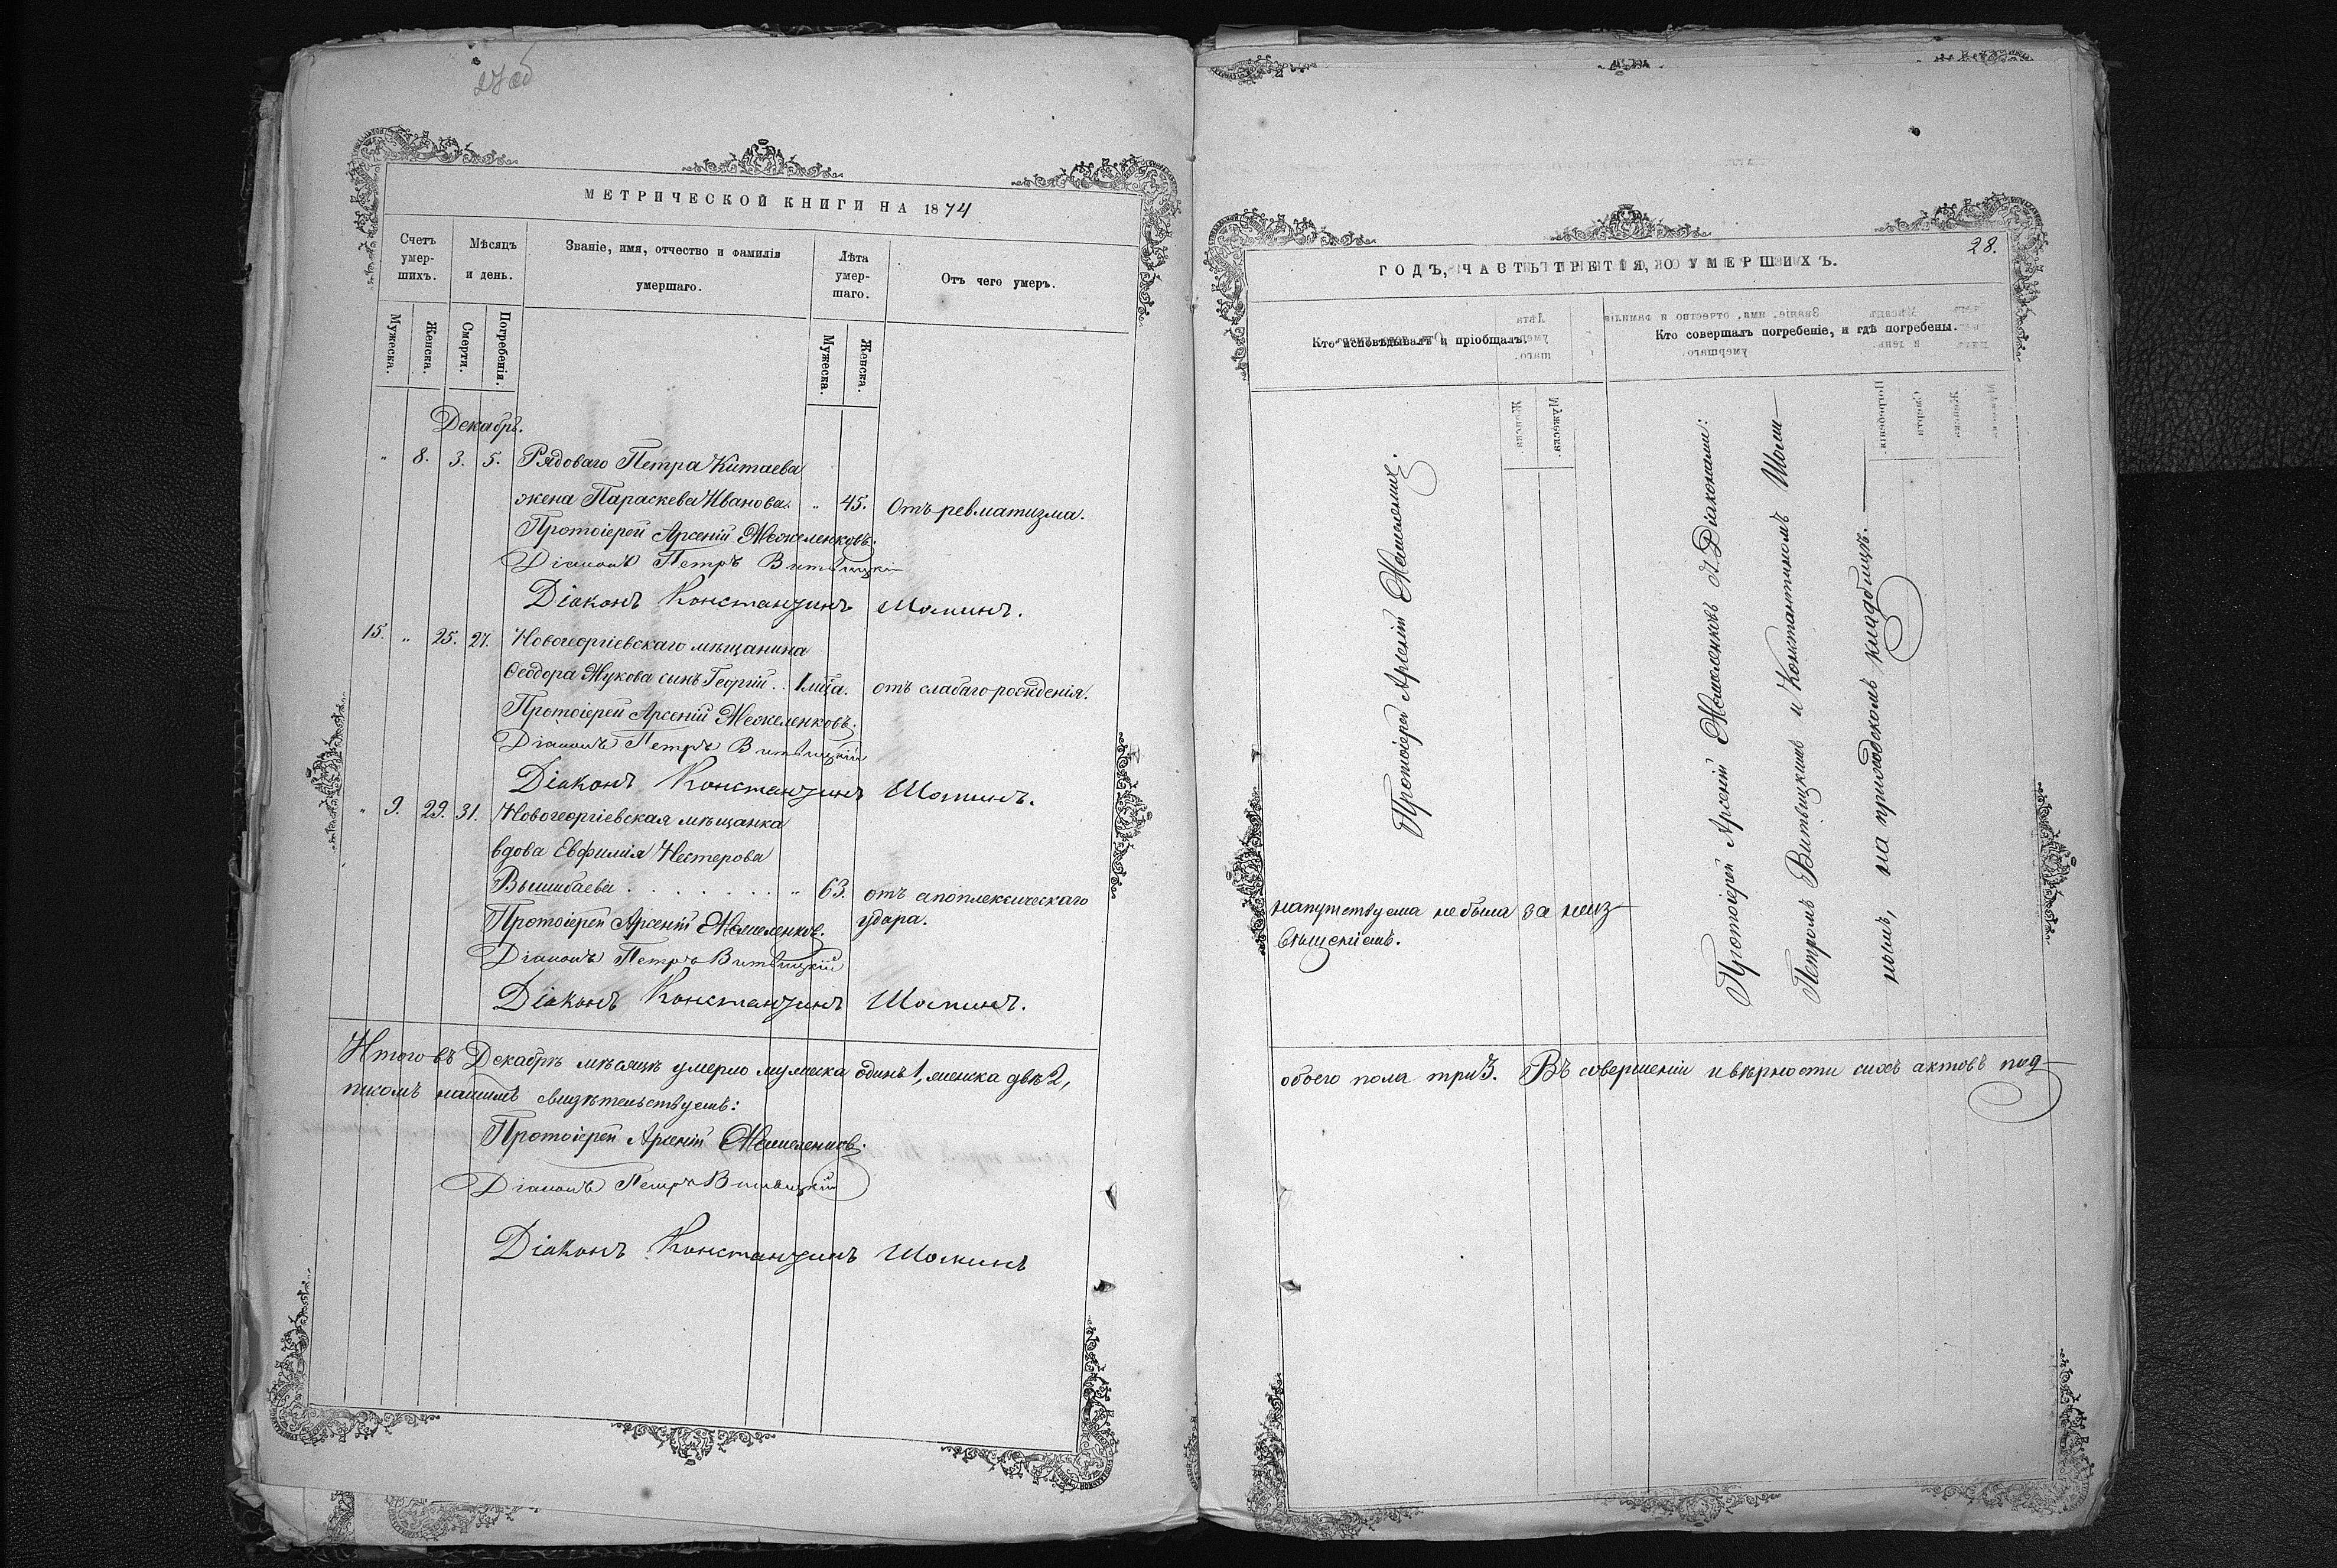 27об
МЕТРИЧЕСКОЙ КНИГИ НА 1874
Счетъ умер-шихъ.
Мѣсяцъ и день.
Званіе, имя, отчество и фамилія умершаго.
Лѣта умер-шаго.
Отъ чего умеръ.
Мужеска.
Женска.
Смерти.
Погребенія.
Мужеска.
Женска.
Декабрь.
" 8. 3. 5. Рядоваго Петра Китаева
жена Параскева Иванова. " 45. Отъ ревматизма.
Протоіерей Арсеній
Діаконъ Петръ Витвицкій
Діаконъ Константинъ
15. " 25. 27. Новогеоргіевскаго мѣщанина
Ѳеодора Жукова сынъ Георгій . . 1 мца. отъ слабаго рожденія.
Протоіерей Арсеній
Діаконъ Петръ Витвицкій
Діаконъ Константинъ
" 9. 29. 31. Новогеоргіевская мѣщанка
вдова Евфимія Нестерова
" 63. отъ апоплексическаго
удара.
Протоіерей Арсеній
Діаконъ Петръ Витвицкій
Діаконъ Константинъ
Итого въ Декабрѣ мѣсяцѣ умерло мужеска одинъ 1, женска двѣ 2,
писомъ нашимъ свидѣтельствуемъ:
Протоіерей Арсеній
Діаконъ Петръ Витвицкій
Діаконъ Константинъ
28.
ГОДЪ, ЧАСТЬ ТРЕТІЯ, О УМЕРШИХЪ.
Кто исповѣдывалъ и пріобщалъ.
Кто совершалъ погребеніе, и гдѣ погребены.
Протоіерей Арсеній
напутствуема не была за неиз-
вѣщеніемъ.
Протоіерей Арсеній съ Діаконами:
Петромъ Витвицкимъ и Константиномъ
нымъ, на приходскомъ кладбищѣ.
обоего пола три 3. Въ совершеніи и вѣрности сихъ актовъ под-